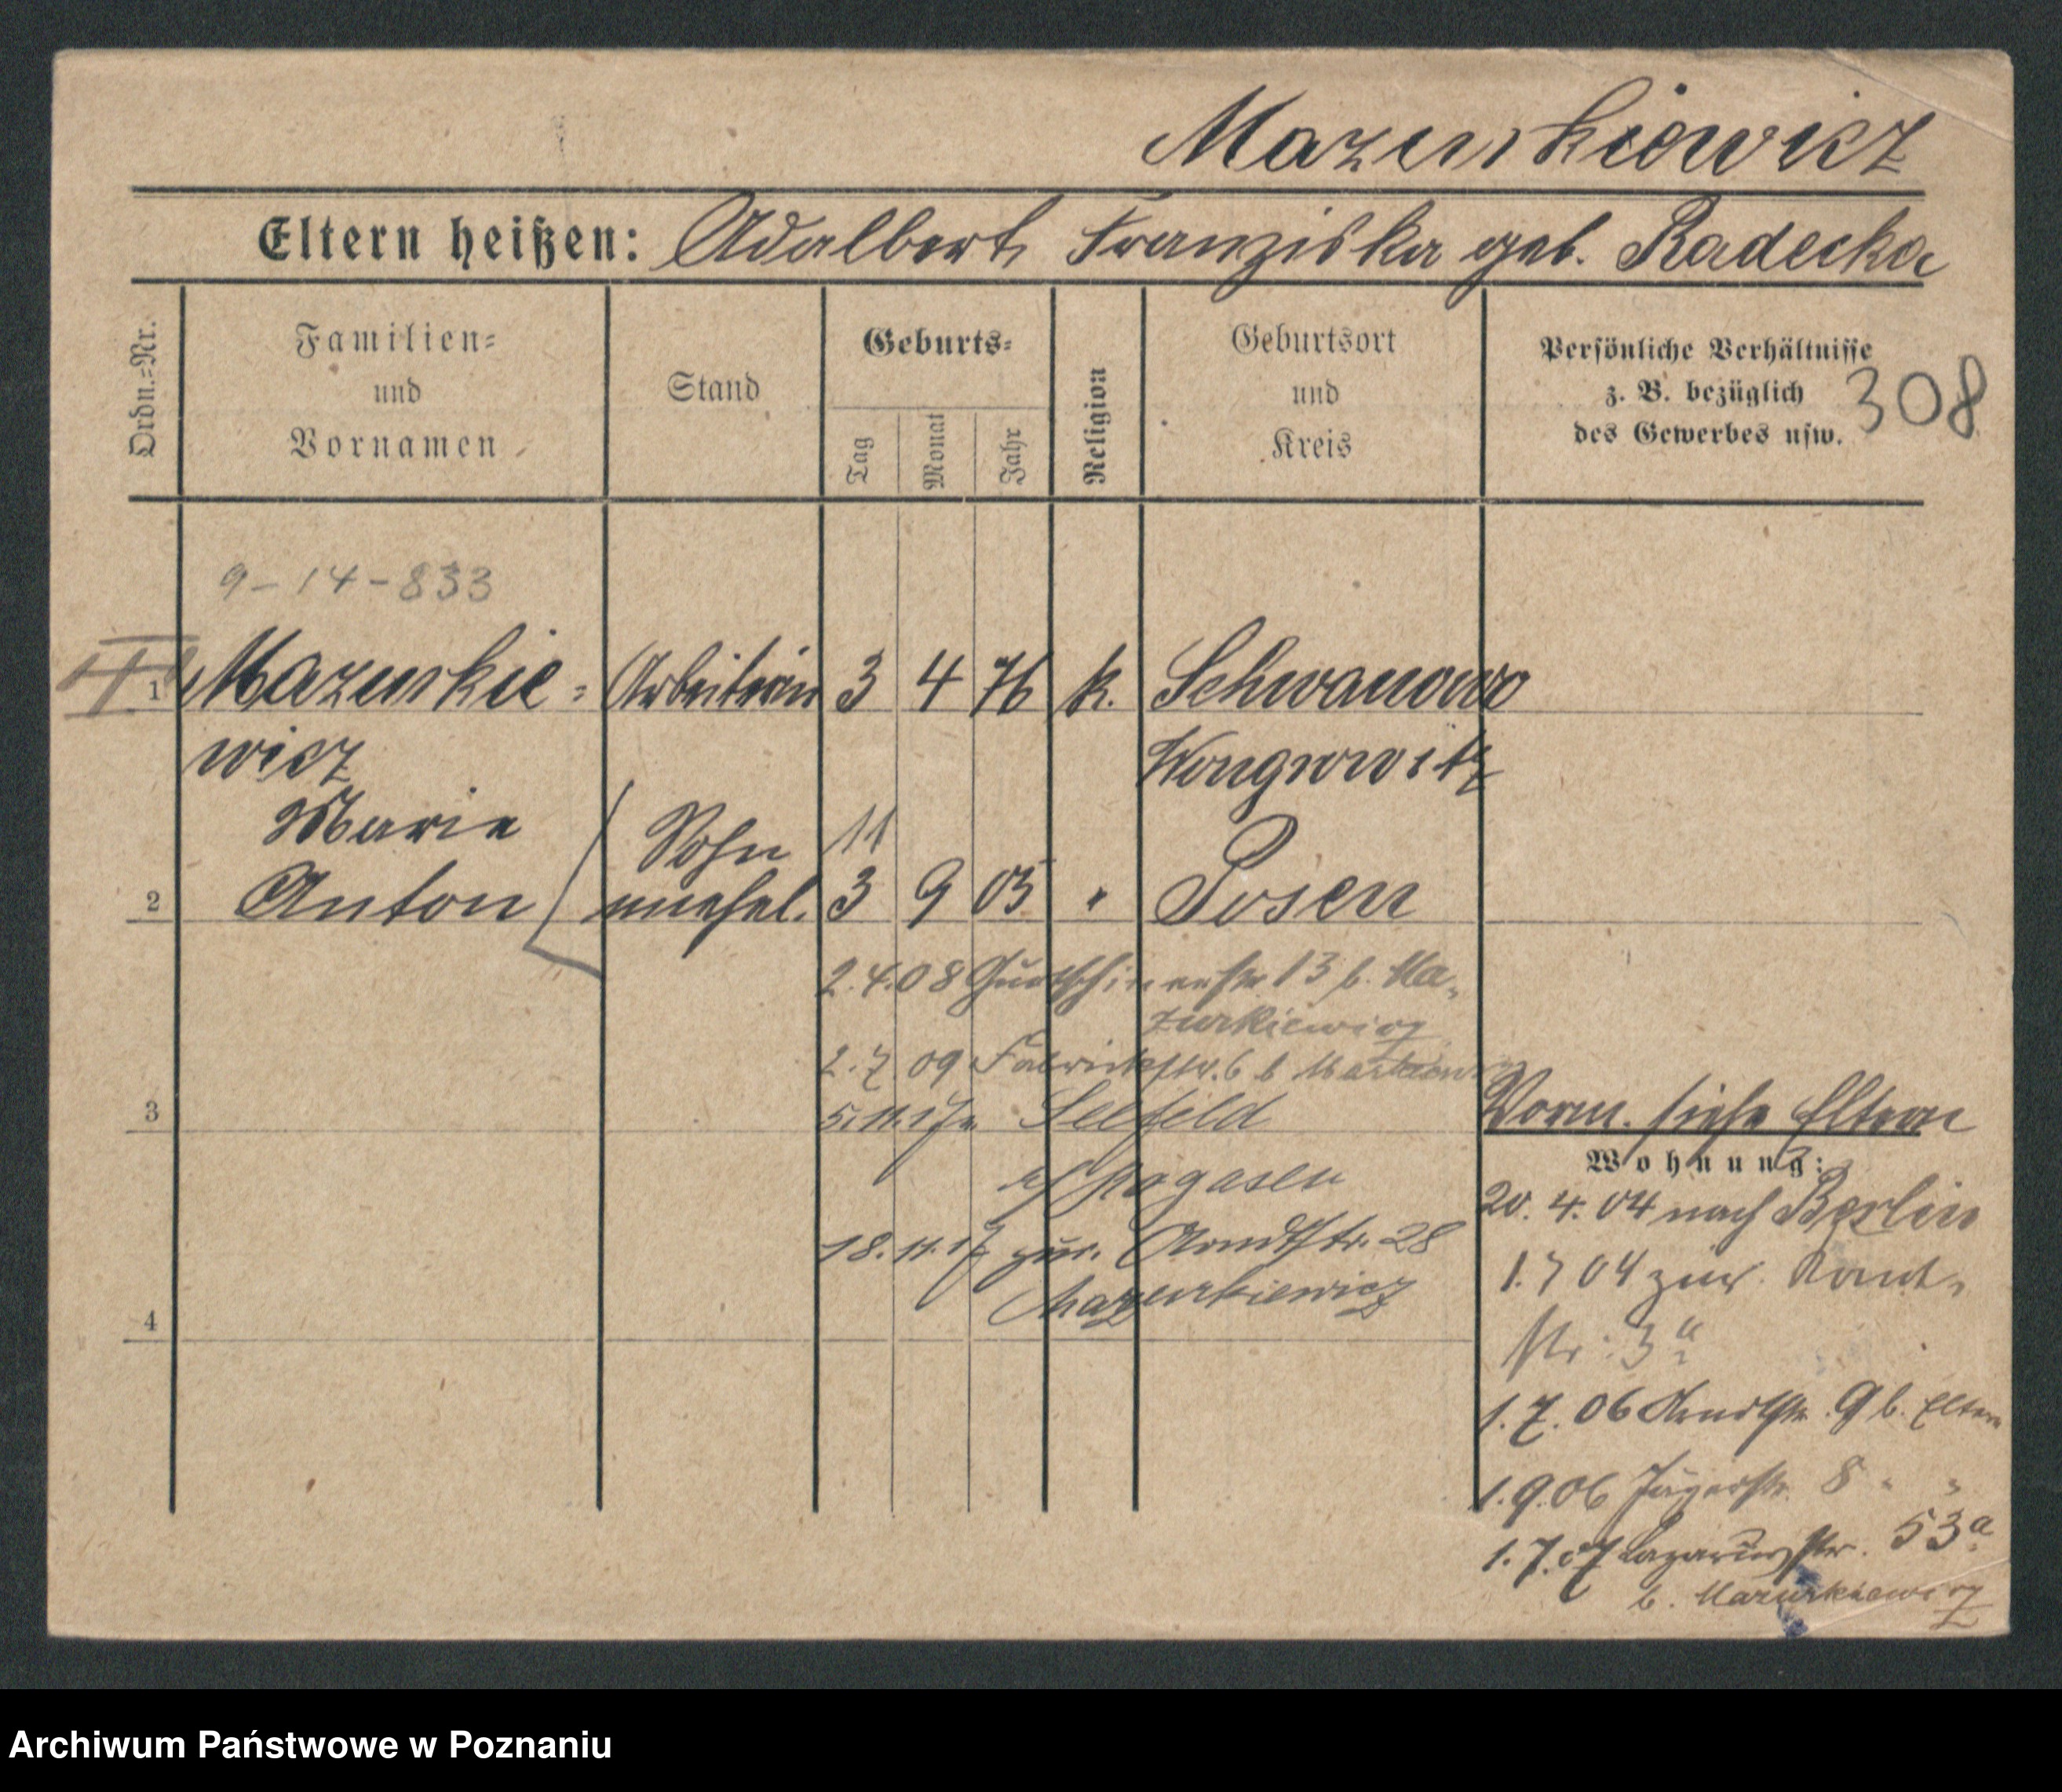 Mazurkiewicz
Eltern heißen: Adalbert, Franziska geb. Radecka
Ordn.-Nr.
Familien-
und
Vornamen
Stand
Geburts-
Tag
Monat
Jahr
Religion
Geburtsort
und
Kreis
Persönliche Verhältnisse
z. B. bezüglich
des Gewerbes usw.
308
9-14-833
II
1 Mazurkie- Arbeiterin 3 4 76 k. Schwanowo
wicz Wongrowitz
Marie
Sohn 11
2 Anton unehel. 3 9 05 " Posen
2.4.08 Gurtschinerstr 13 b. Ma-
zurkiewicz
2.7 09 Fabrikstr. 6 b
3 5.11.17 n. Seefeld
b/ Rogasen
18.11.17 zur. Arndtstr. 28
Mazurkiewicz
4
Vorm. siehe Eltern
Wohnung:
20. 4. 04 nach Berlin
1.7 04 zur. Kant-
str: 3a
1.7.06 Arndtstr. 9 b. Eltern
1.9.06 Jägerstr. 8 " "
1.7.07 Lazarusstr. 53a
b. Mazurkiewicz
Archiwum Państwowe w Poznaniu